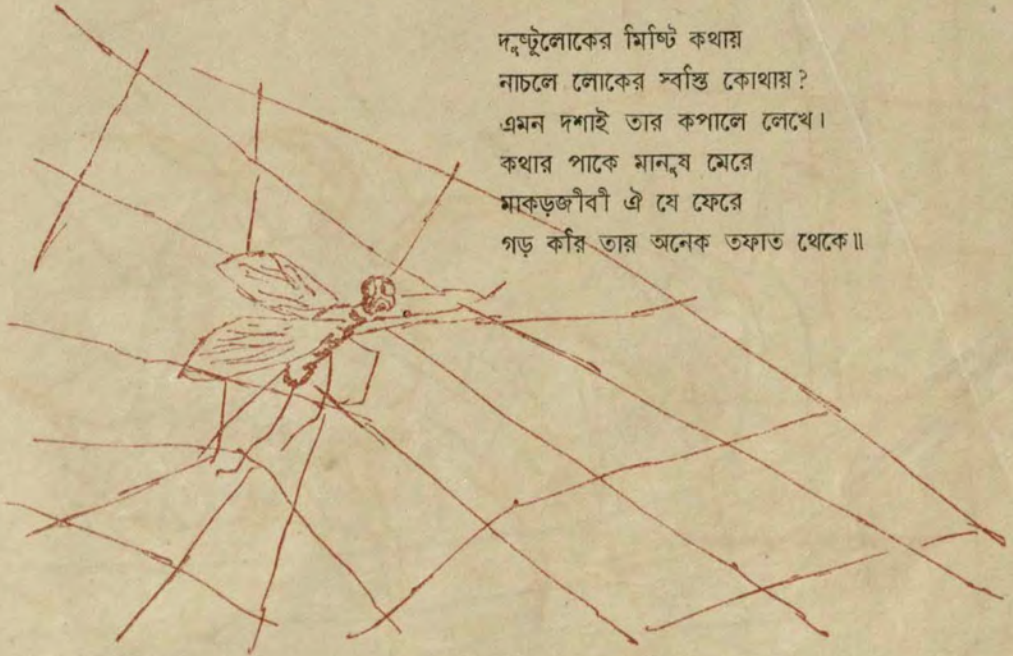 দুষ্টুলোকের মিষ্টি কথায়
নাচলে লোকের স্বস্তি কোথায়?
এমন দশাই তার কপালে লেখে।
কথার পাকে মানুষ মেরে
মাকড়জীবী ঐ যে ফেরে
গড় করি তায় অনেক তফাত থেকে॥